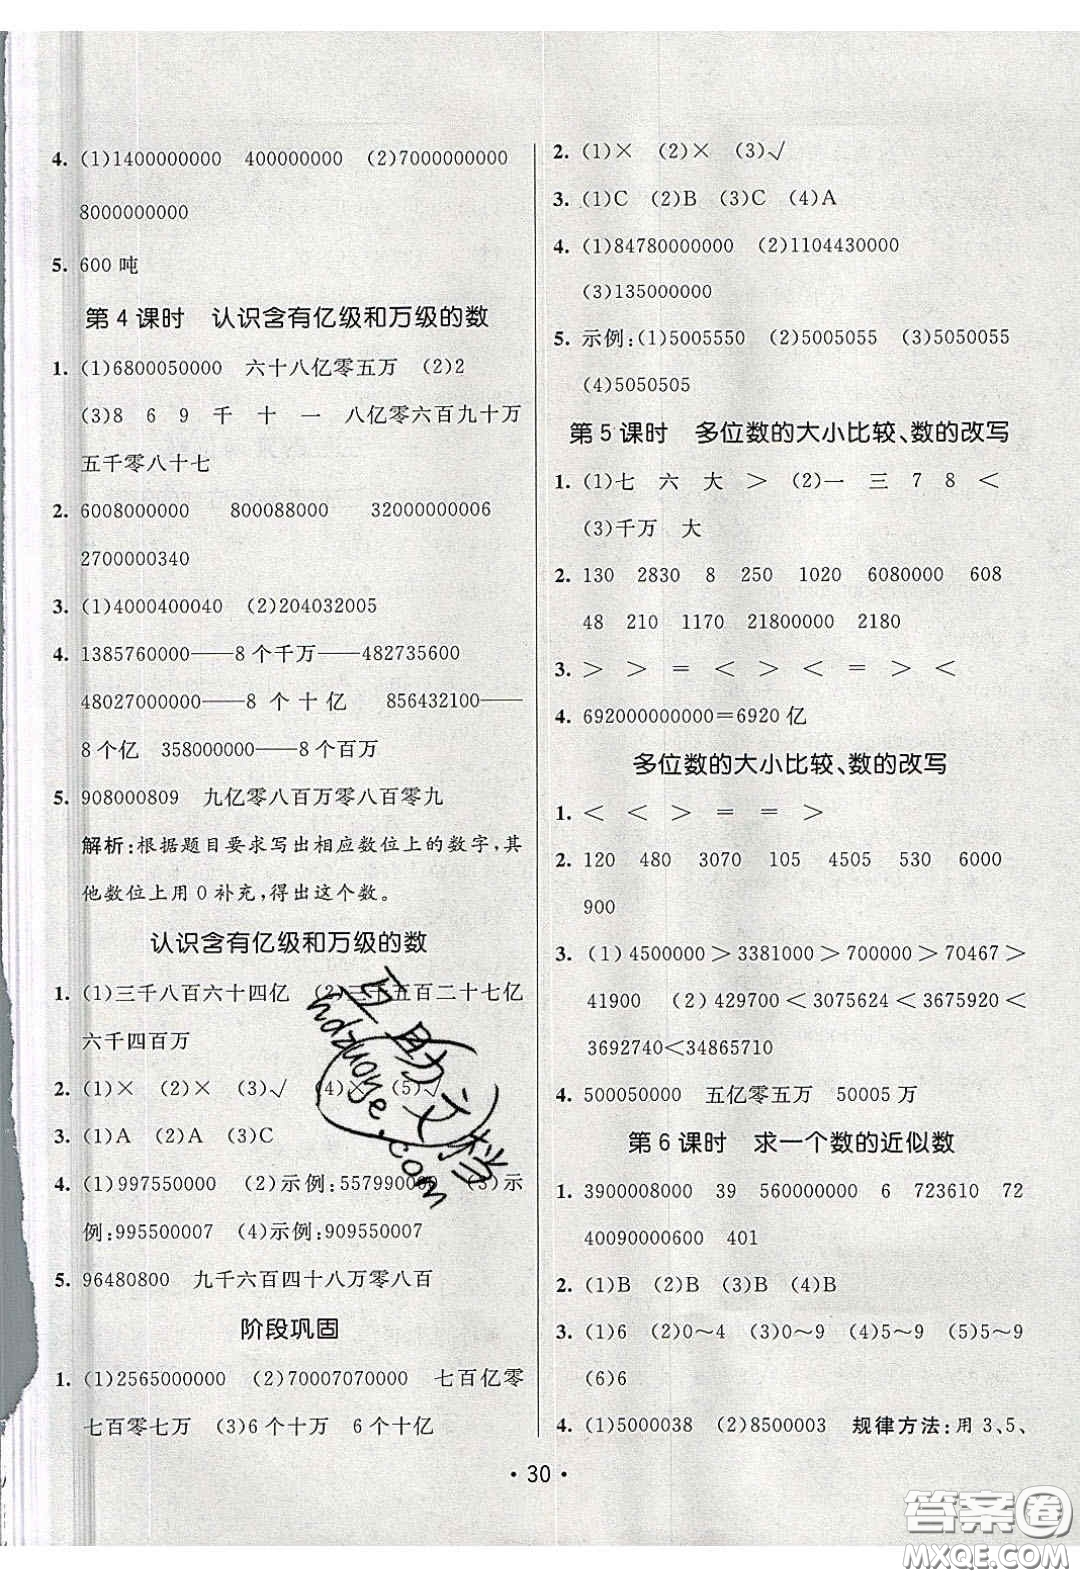 4. (1)1400000000 400000000 (2)7000000000
8000000000
5. 600吨
第4课时 认识含有亿级和万级的数
1. (1)6800050000 六十八亿零五万 (2)2
(3)8 6 9 千 十 一 八亿零六百九十万
五千零八十七
2. 6008000000 800088000 32000000006
2700000340
3. (1)4000400040 (2)204032005
4. 1385760000——8个千万——482735600
48027000000——8个十亿 856432100——
8个亿 358000000——8个百万
5. 908000809 九亿零八百万零八百零九
解析:根据题目要求写出相应数位上的数字,其
他数位上用0补充,得出这个数。
认识含有亿级和万级的数
1. (1)三千八百六十四亿 (2)三千五百二十七亿
六千四百万
2. (1)× (2)× (3)√ (4)× (5)√
3. (1)A (2)A (3)C
4. (1)997550000 (2)示例:557990000 (3)示
例:995500007 (4)示例:909550007
5. 96480800 九千六百四十八万零八百
阶段巩固
1. (1)2565000000 (2)70007070000 七百亿零
七百零七万 (3)6个十万 6个十亿
2. (1)× (2)× (3)√
3. (1)C (2)B (3)C (4)A
4. (1)84780000000 (2)1104430000
(3)135000000
5. 示例:(1)5005550 (2)5055005 (3)5050055
(4)5050505
第5课时 多位数的大小比较、数的改写
1. (1)七 六 大 > (2)一 三 7 8 <
(3)千万 大
2. 130 2830 8 250 1020 6080000 608
48 210 1170 21800000 2180
3. > > = < > < = > <
4. 692000000000=6920亿
多位数的大小比较、数的改写
1. < < > = = >
2. 120 480 3070 105 4505 530 6000
900
3. (1)4500000>3381000>700000>70467>
41900 (2)429700<3075624<3675920<
3692740<34865710
4. 500050000 五亿零五万 50005万
第6课时 求一个数的近似数
1. 3900008000 39 560000000 6 723610 72
40090000600 401
2. (1)B (2)B (3)B (4)B
3. (1)6 (2)0~4 (3)0~9 (4)5~9 (5)5~9
(6)6
4. (1)5000038 (2)8500003 规律方法:用3、5、
• 30 •
互助文档
hdzuoye.com
答案圈
MXQE.COM